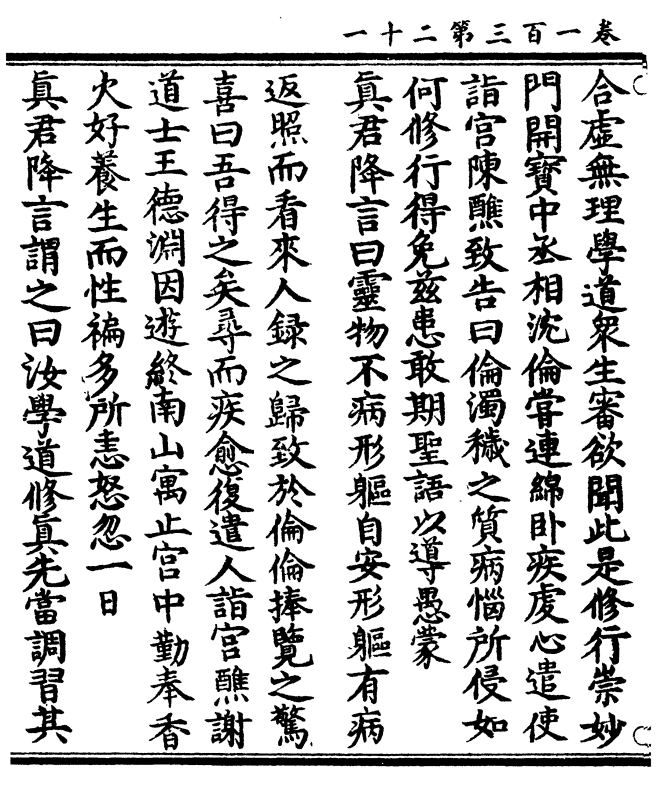 卷一百三第二十一
合虛無理學道衆生審欲聞此是修行崇妙
門開寶中丞相沈倫嘗連綿卧疾虔心遣使
詣宫陳醮致告曰倫濁穢之質病惱所侵如
何修行得免兹患敢期聖語以導愚蒙
眞君降言曰靈物不病形軀自安形軀有病
返照而看來人録之歸致於倫倫捧覽之驚
喜曰吾得之矣尋而疾愈復遣人詣宫醮謝
道士王德淵因遊終南山寓止宫中勤奉香
火好養生而性褊多所恚怒忽一日
眞君降言謂之曰汝學道修眞先當調習其